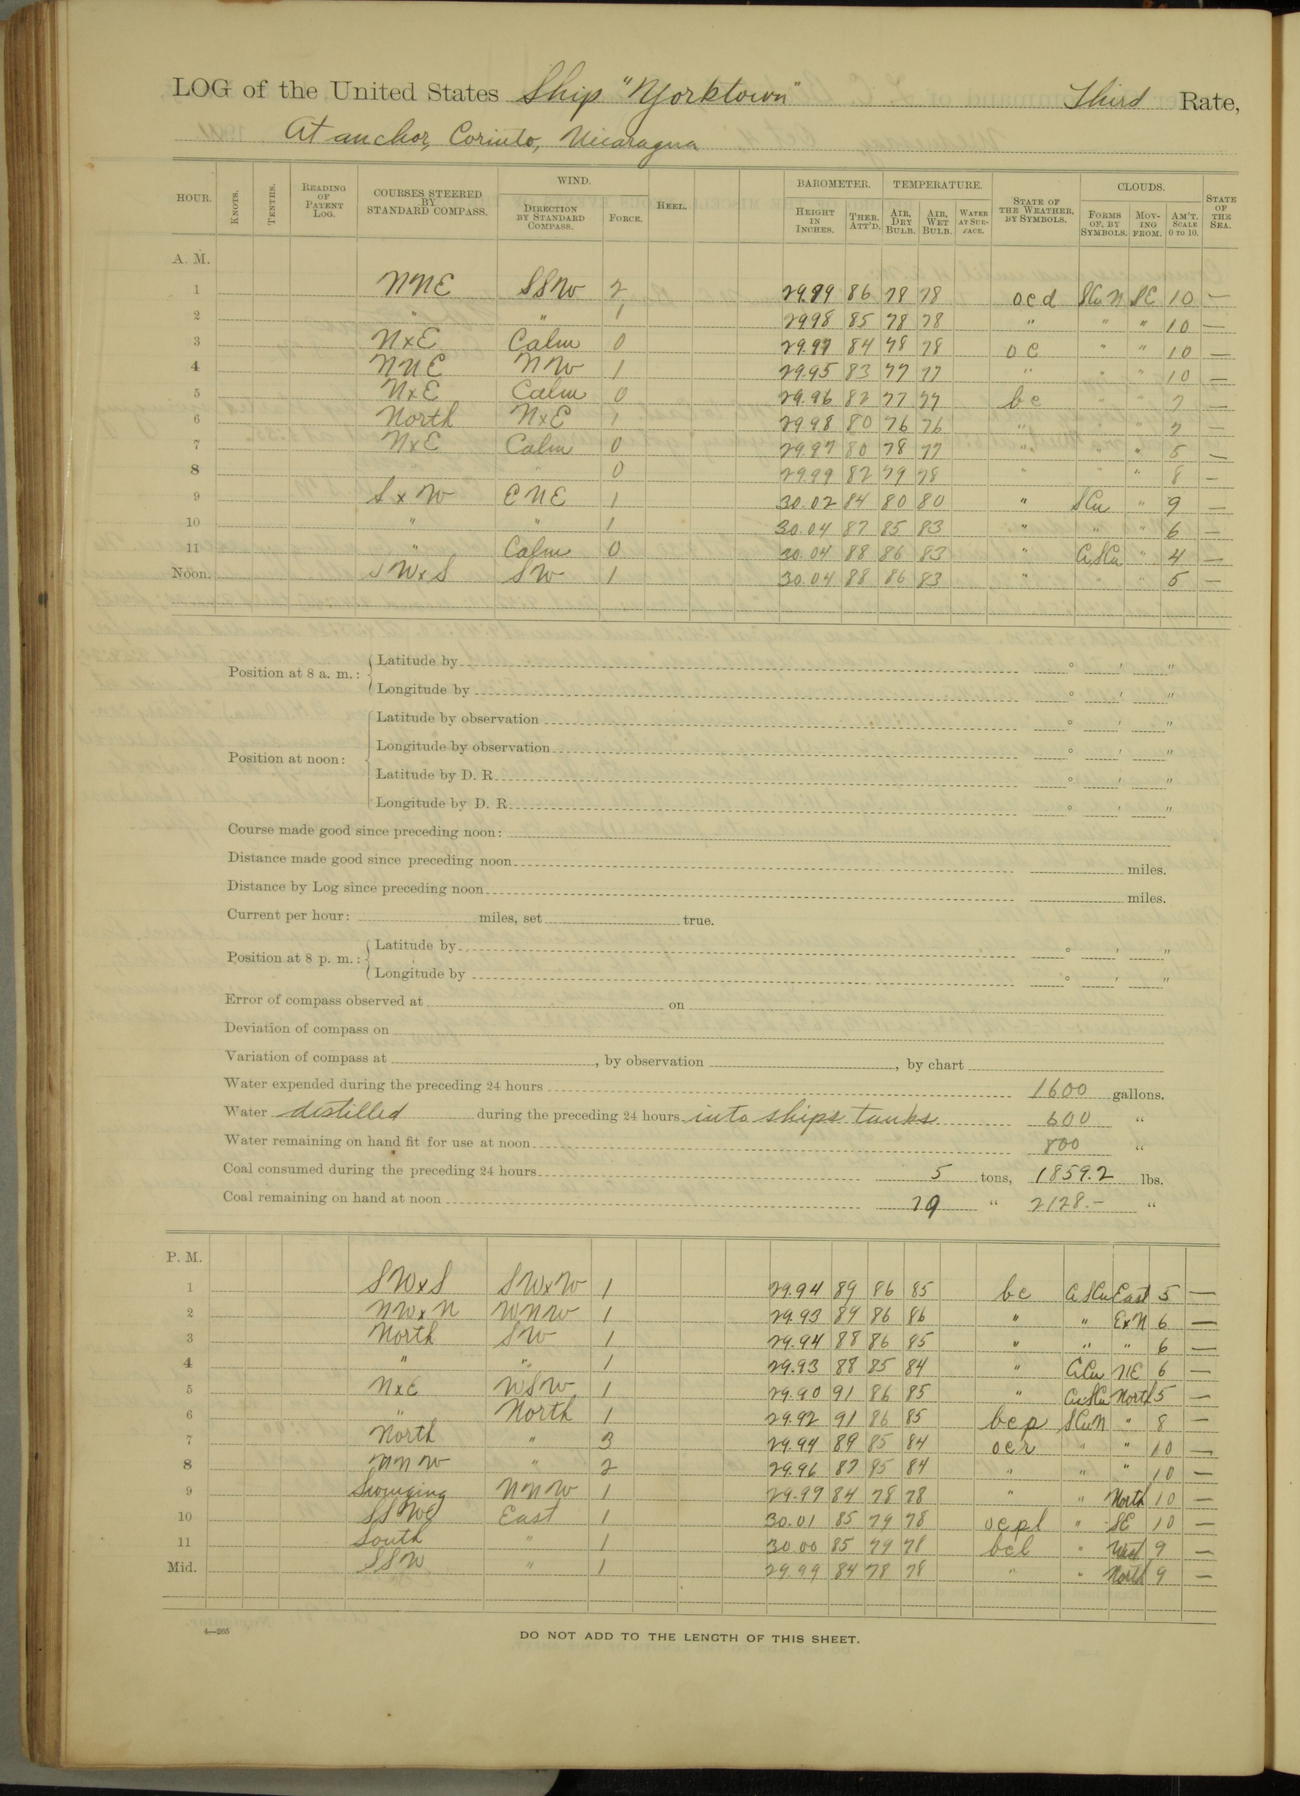 LOG of the United States Ship "Yorktown" Third Rate,
At anchor, Corinto, Nicaragua
HOUR. KNOTS. TENTHS. READING OF PATENT LOG. COURSES STEERED BY STANDARD COMPASS. WIND. DIRECTION BY STANDARD COMPASS. FORCE. HEEL. BAROMETER. HEIGHT IN INCHES. THER. ATT'D. TEMPERATURE. AIR, DRY BULB. AIR, WET BULB. WATER AT SURFACE. STATE OF THE WEATHER, BY SYMBOLS. CLOUDS. FORMS OF, BY SYMBOLS. MOVING FROM. AM'T. SCALE 0 TO 10. STATE OF THE SEA.
A. M.
1 NNE SSW 2 29.99 86 78 78 ocd SCu N SE 10 —
2 " " 1 29.98 85 78 78 " " " 10 —
3 NxE Calm 0 29.97 84 78 78 oc " " 10 —
4 NNE NW 1 29.95 83 77 77 " " " 10 —
5 NxE Calm 0 29.96 82 77 77 bc " " 7 —
6 North NxE 1 29.98 80 76 76 " " " 7 —
7 NxE Calm 0 29.97 80 78 77 " " " 5 —
8 " 0 29.99 82 79 78 " " " 8 —
9 SxW ENE 1 30.02 84 80 80 " SCu " 9 —
10 " " 1 30.04 87 85 83 " " " 6 —
11 " Calm 0 30.04 88 86 83 " CiSCu " 4 —
Noon. SWxS SW 1 30.04 88 86 83 " " " 5 —
Position at 8 a. m.: Latitude by ° ' "
Longitude by ° ' "
Position at noon: Latitude by observation ° ' "
Longitude by observation ° ' "
Latitude by D. R. ° ' "
Longitude by D. R. ° ' "
Course made good since preceding noon:
Distance made good since preceding noon miles.
Distance by Log since preceding noon miles.
Current per hour: miles, set true.
Position at 8 p. m.: Latitude by ° ' "
Longitude by ° ' "
Error of compass observed at on
Deviation of compass on
Variation of compass at , by observation , by chart
Water expended during the preceding 24 hours 1600 gallons.
Water distilled during the preceding 24 hours into ships tanks 600 "
Water remaining on hand fit for use at noon 800 "
Coal consumed during the preceding 24 hours 5 tons, 1859.2 lbs.
Coal remaining on hand at noon 79 " 2128.– "
P. M.
1 SWxS SWxW 1 29.94 89 86 85 bc CiSCu East 5 —
2 NWxN WNW 1 29.93 89 86 86 " " ExN 6 —
3 North SW 1 29.94 88 86 85 " " " 6 —
4 " " 1 29.93 88 85 84 " CiCu NE 6 —
5 NxE WSW 1 29.90 91 86 85 " CiSCu North 5 —
6 " North 1 29.92 91 86 85 bcp SCuN " 8 —
7 North " 3 29.94 89 85 84 ocr " " 10 —
8 NNW " 2 29.96 87 85 84 " " " 10 —
9 Swinging NNW 1 29.99 84 78 78 " " North 10 —
10 East 1 30.01 85 79 78 ocpl " SE 10 —
11 South " 1 30.00 85 79 78 bcl " West 9 —
Mid. SSW " 1 29.99 84 78 78 " " North 9 —
4—265
DO NOT ADD TO THE LENGTH OF THIS SHEET.